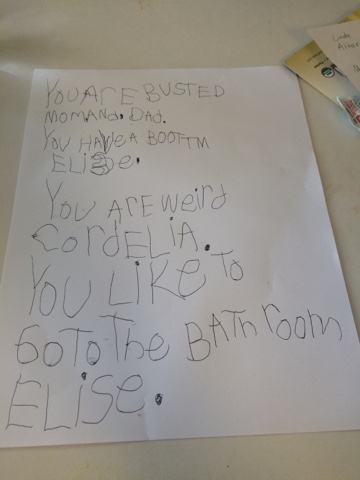 YOU ARE BUSTED
MOM AND. DAD.
YOU HAVE A BOOTTM
ELISE.
YOU ARE weird
CordELiA.
YOU LiKE TO
GO TO The BATh room
ELiSe.
Linda